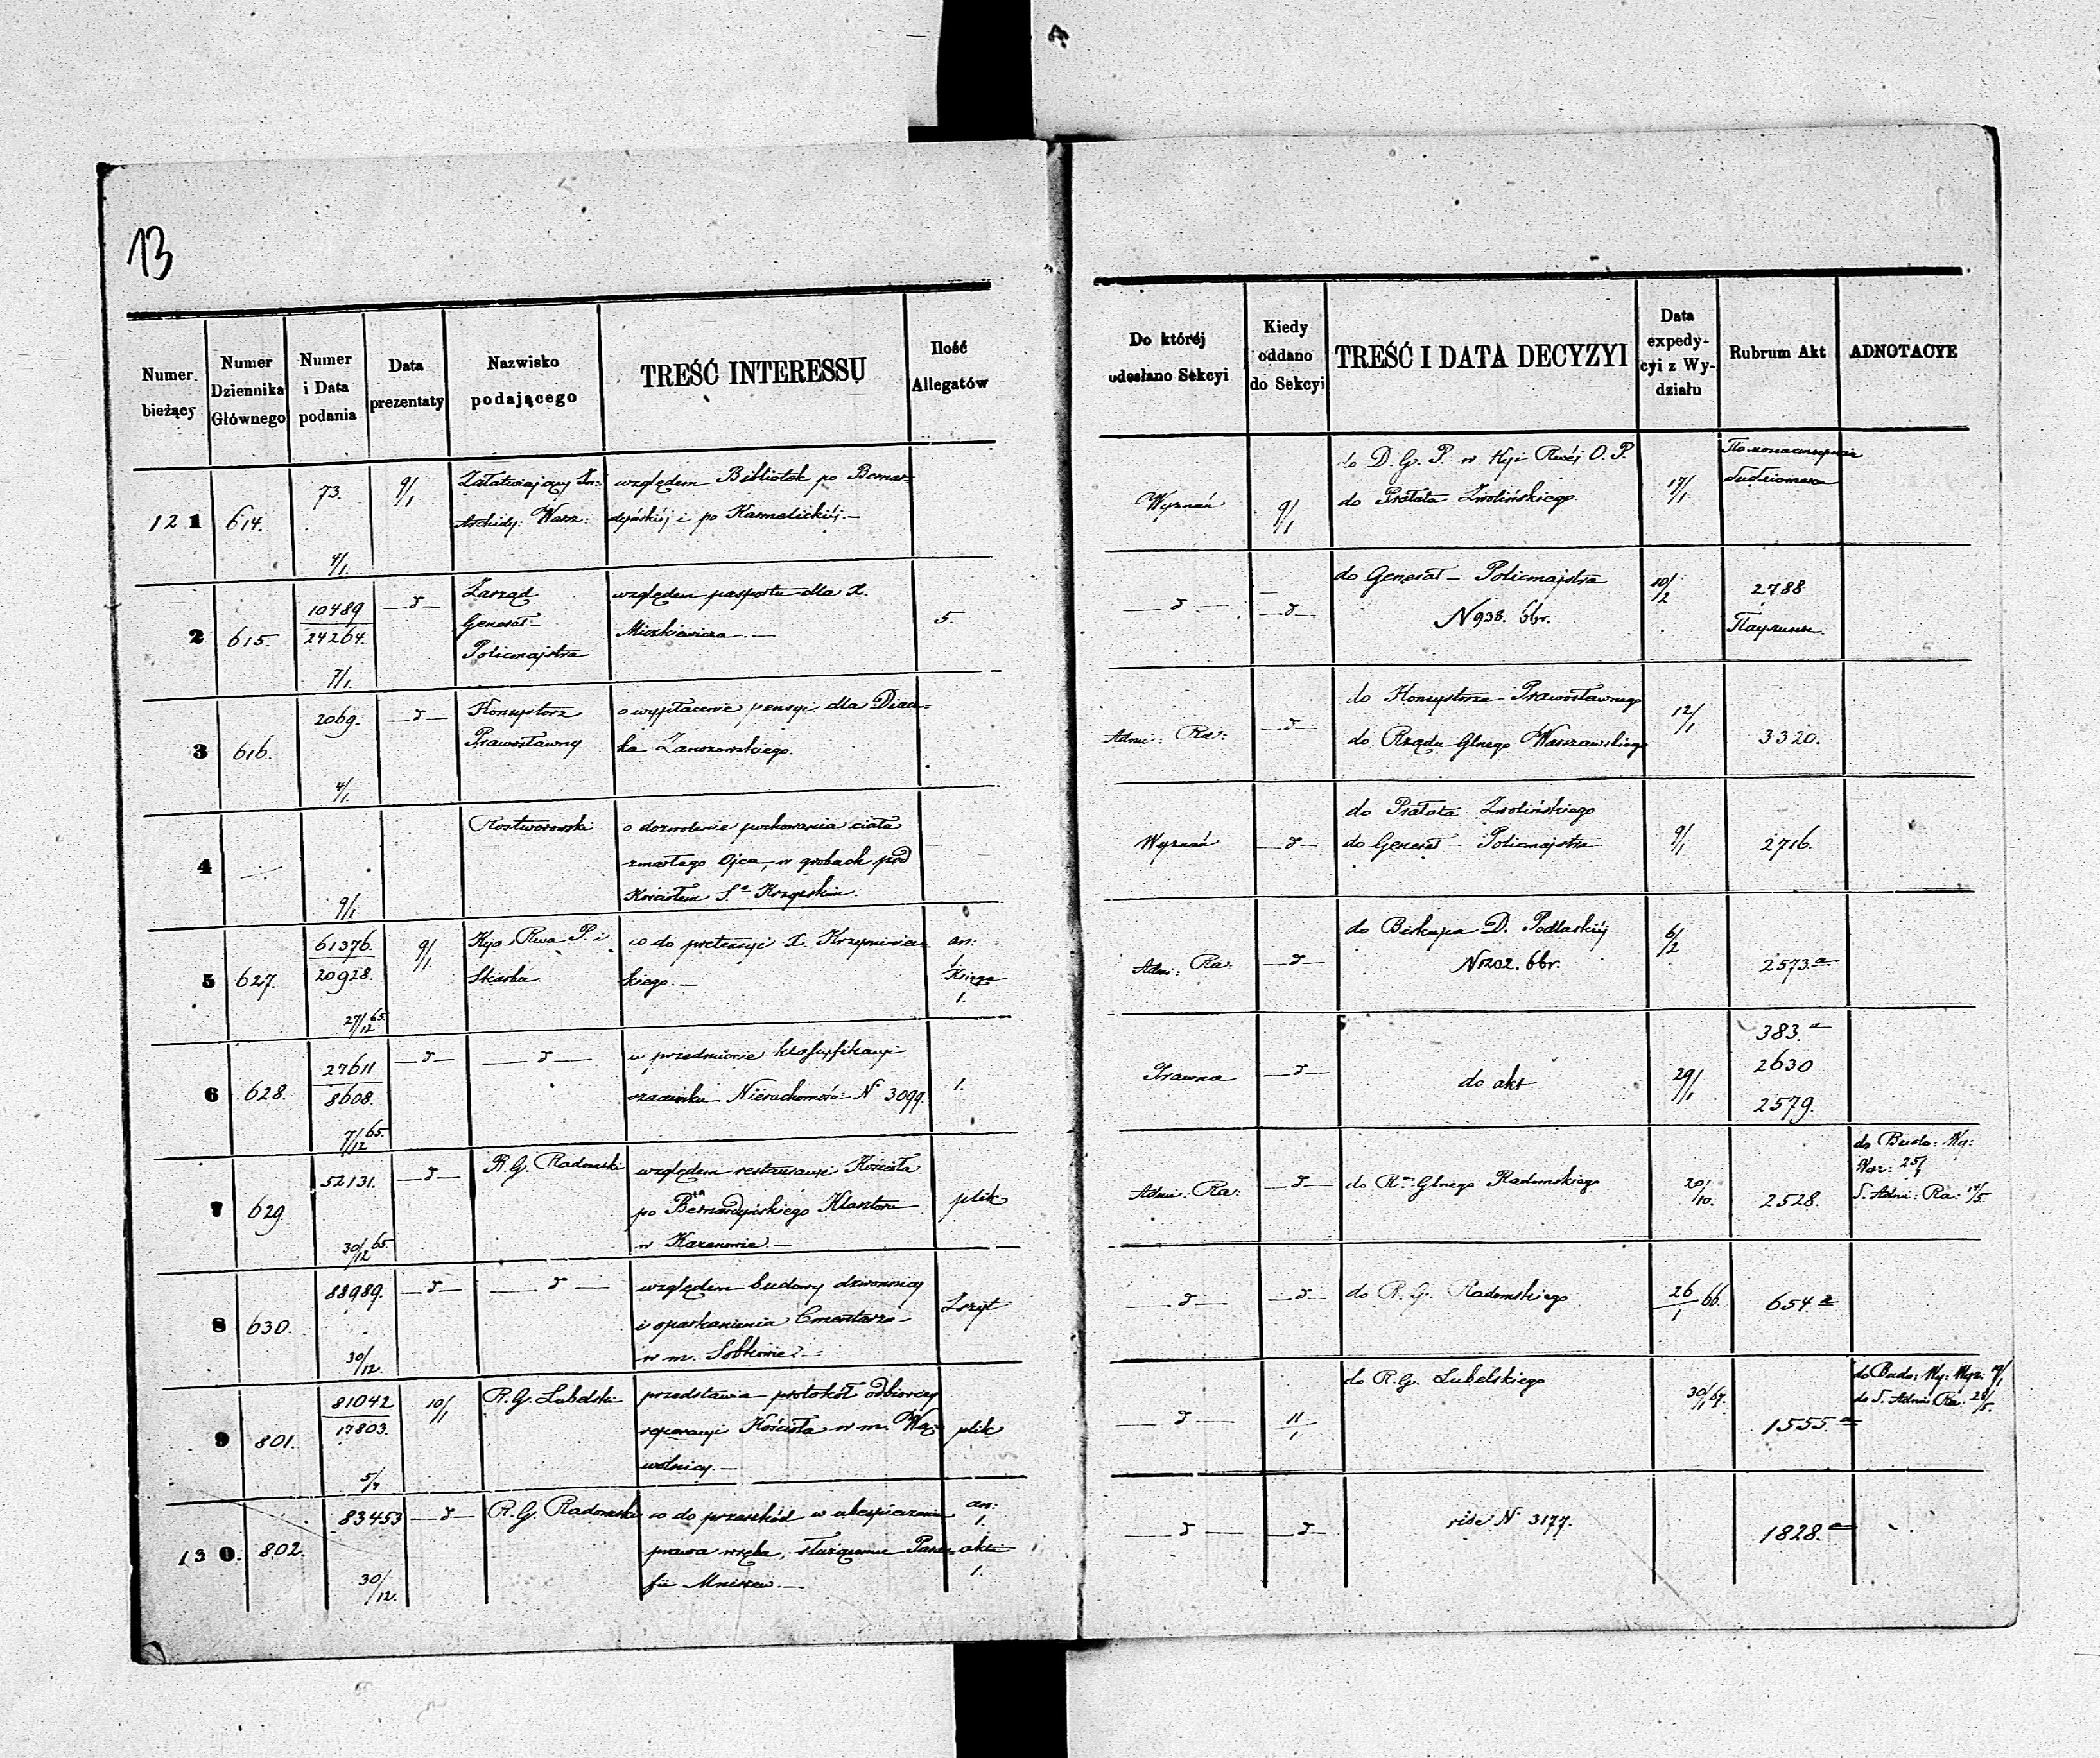 13
Numer bieżący
Numer Dziennika Głównego
Numer i Data podania
Data prezentaty
Nazwisko podającego
TREŚĆ INTERESSU
Ilość Allegatów
Do którėj odesłano Sekcyi
Kiedy oddano do Sekcyi
TREŚĆ I DATA DECYZYI
Data expedycyi z Wydziału
Rubrum Akt
ADNOTACYE
121
614.
73.
4/1.
9/1
Załatwiający In:
Archidy: Warsz:
względem Bibliotek po Bernar=
dyńskiéj i po Karmelickiéj.—
Wyznań
9/1
do D. G. P. w Kyi Rwéj O. P.
do Prałata Zwolińskiego.
17/1
2
615.
10489
24264.
7/1.
—d—
Zarząd
Generał-
Policmajstra
względem pasportu dla X.
5.
—d—
—d—
do Generał- Policmajstra
N 938. 66r.
10/2
2788
Паулины
3
616.
2069.
4/1.
—d—
Konsystorz
Prawosławny
o wypłacenie pensyi dla Diacz=
ka
Admi: Ra:
—d—
do Konsystorza Prawosławnego
do Rządu Glnego Warszawskiego
12/1
3320.
4
9/1
Rostworowski
o dozwolenie pochowania ciała
zmarłego Ojca, w grobach pod
Kościołem Sgo Krzyskim.
Wyznań
—d—
do Prałata Zwolińskiego
do Generał- Policmajstra
9/1
2716.
5
627.
61376.
20928.
27/12 65.
9/1.
Kya Rwa P. i
Skarbu
co do pretensyi X.
kiego.—
an:
1.
Księga
1.
Admi: Ra:
—d—
do Biskupa D. Podlaskiéj
N 202. 66r.
6/2
2573.a
6
628.
27611
8608.
7/12 65.
—d—
—d—
w przedmiocie klasyfikacyi
szacunku Nieruchomości N 3099.
1.
Prawna
—d—
do akt
29/1
383.a
2630
2579.
7
629.
52131.
30/12 65.
—d—
R. G. Radomski
względem restauracyi Kościoła
po Bernardyńskiego Klasztoru
w Kazanowie.—
plik
Admi: Ra:
—d—
do Rdu Glnego Radomskiego
20/10.
2528.
do Budo: Wy:
S. Admi: Ra: 14/5
8
630.
88989.
30/12.
—d—
—d—
względem budowy dzwonnicy
i oparkanienia Cmentarza
w m. Sobkowie.—
Zszyt
—d—
—d—
do R. G. Radomskiego
26/1 66.
654.a
9
801.
81042
17803.
10/1
R. G. Lubelski
przedstawia protokół odbiorczy
reparacyi Kościoła w m. Wą=
wolnicy.—
plik
—d—
11/1
do R. G. Lubelskiego
30/1 67.
1555.a
do S. Admi Ra: 28/5
130.
802.
83453
30/12.
—d—
R. G. Radomski
co do przeszkód w ubespieczeniu
prawa wrębu, służącemu Para=
fii Mniszew.—
an:
1.
akta
1.
—d—
—d—
vide N 3177.
1828.a